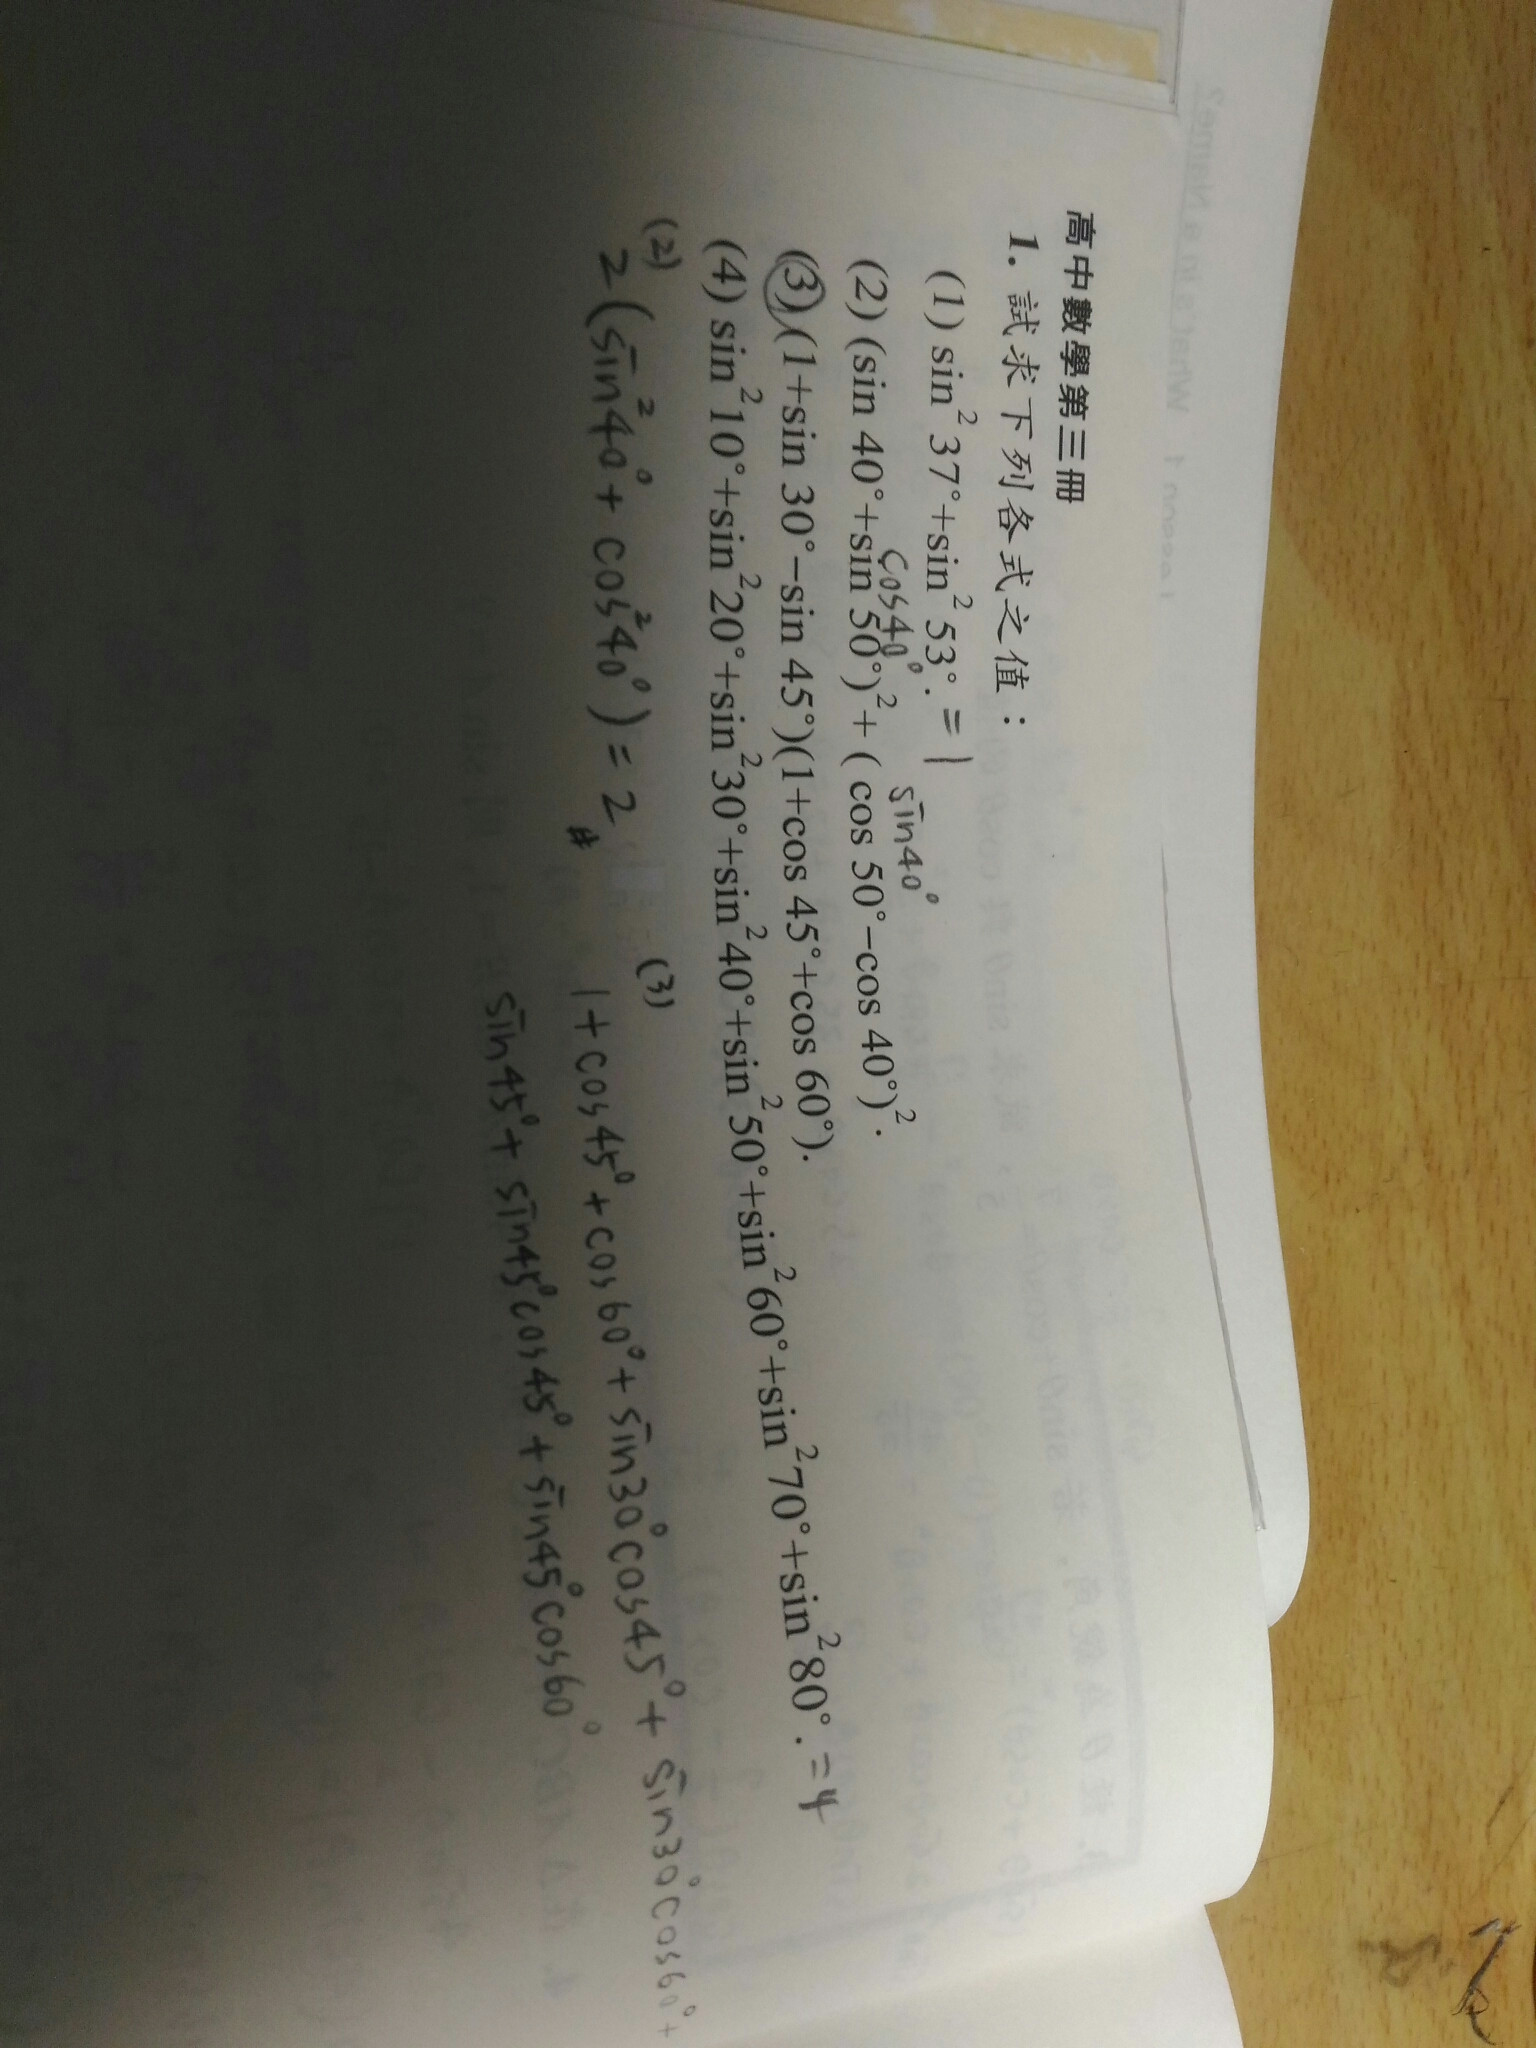 高中數學第三冊
1. 試求下列各式之值：
(1) sin²37°+sin²53°. = 1
cos40° sin40°
(2) (sin 40°+sin 50°)²+( cos 50°−cos 40°)².
(3) (1+sin 30°−sin 45°)(1+cos 45°+cos 60°).
(4) sin²10°+sin²20°+sin²30°+sin²40°+sin²50°+sin²60°+sin²70°+sin²80°. =4
(2)
2(sin²40°+cos²40°)=2 #
(3)
1+cos45°+cos60°+sin30°cos45°+sin30°cos60°+
sin45°+sin45°cos45°+sin45°cos60°